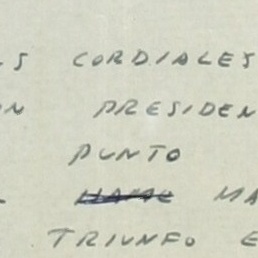 S CORDIALES
ON PRESIDEN
PUNTO
MA
TRIUNFO E